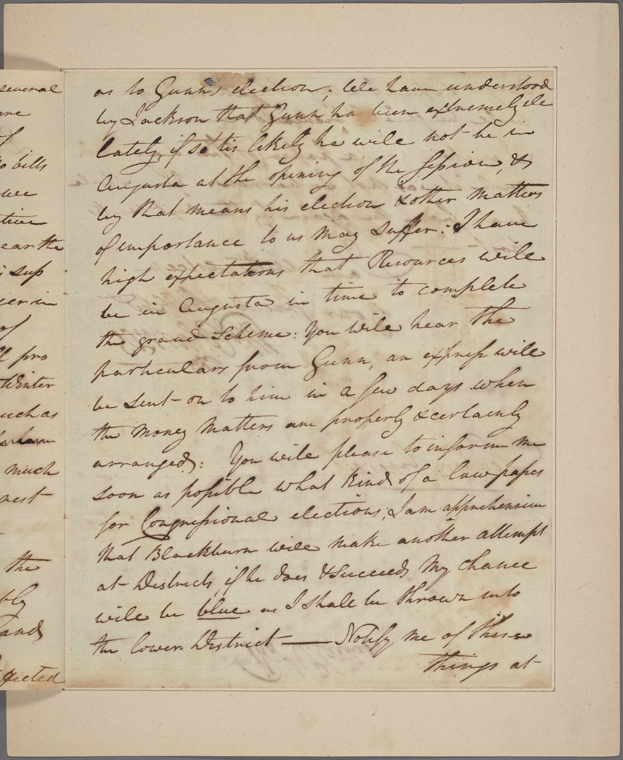 several
are
of
to bills
we
tive
ear the
sup
ger in
of
pro
Winter
such as
much
nest
the
bly
and
fected
as to Gunn's election; We have understood
by Jackson that Gunn has been extremely ill
lately, if so tis likely he will not be in
Augusta at the opening of the Session, &
by that means his election & other matters
of importance to us may suffer: I have
high expectations that Resources will
be in Augusta in time to complete
the grand Scheme: You will hear the
particulars from Gunn, an express will
be sent on to him in a few days when
the money matters are properly & certainly
arranged: You will please to inform me
soon as possible what kind of a law passes
for Congressional elections; I am apprehensive
that Blackburn will make another attempt
at Districts, if he does & succeeds My chance
will be blue as I shall be thrown into
the lower District — Notify me of these
things at